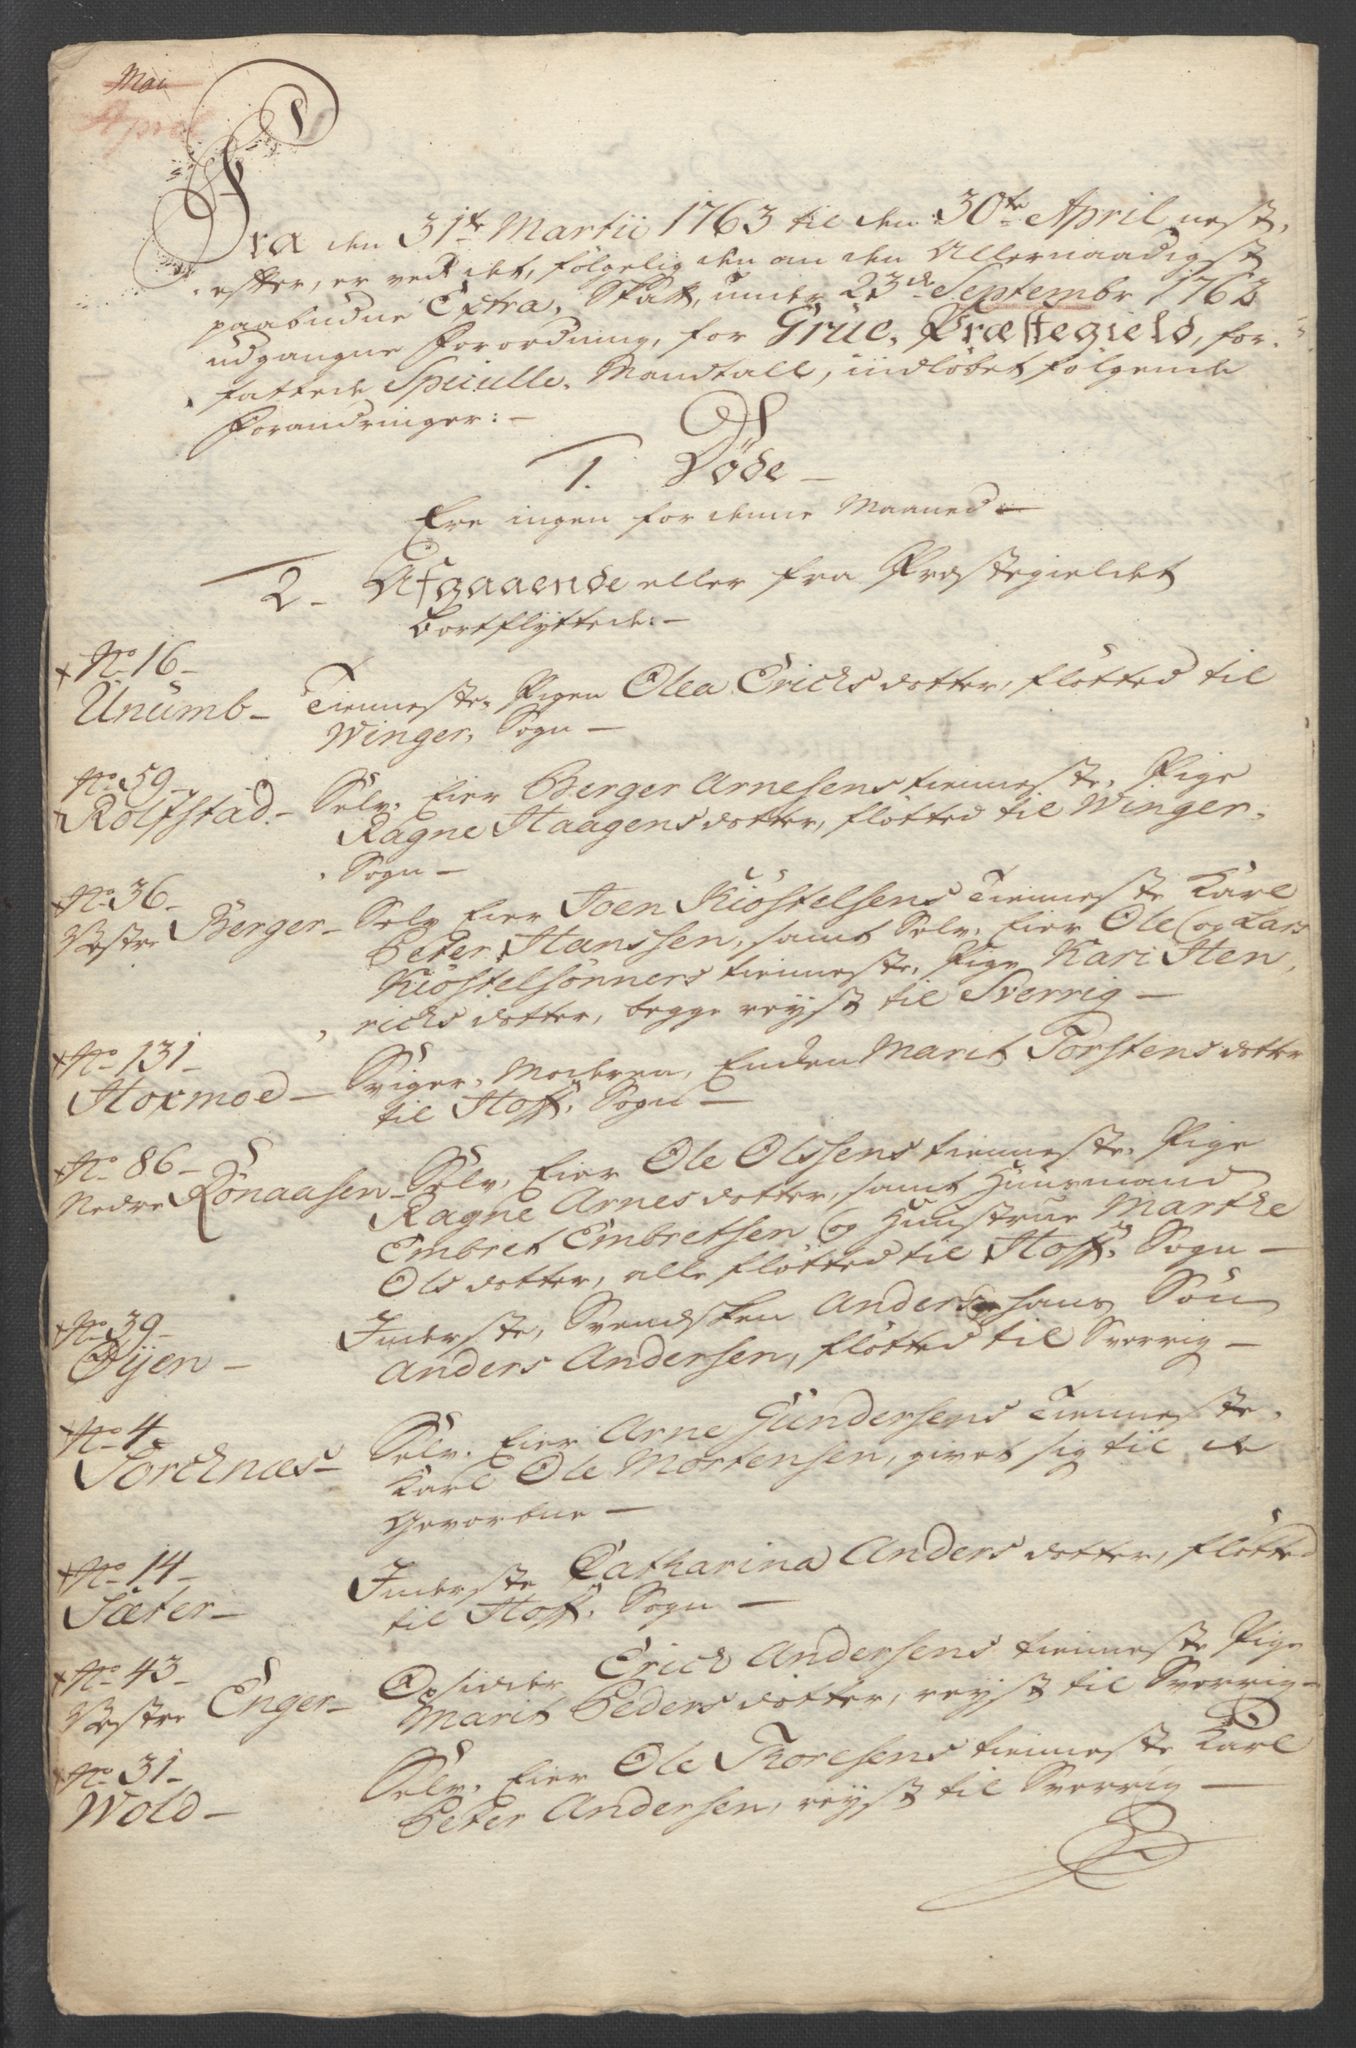 Mai
April
Fra den 31te Martii 1763 til den 30te April nest,
efter, er ved det, følgelig den an den Allernaadigst
paabudne Extra, Skatt, under 23de Septembr 1762
udgangne Forordning, for Grue, Præstegield, for-
fattede Speielle, Mandtall, indløbet følgende
Forandringer:-
1. Døde -
Ere ingen for denne Maaned -
2. Afgaaende eller fra Præstegieldet
bortflyttede:-
No 16-
Unumb- Tienneste, Pigen Olea Erichs dotter, flötted til
Winger, Sogn -
No 59-
Rolfstad- Selv, Eier Berger Arnesens tienneste, Pige
Ragne Haagens dotter, flötted til Winger,
Sogn -
No 36-
Vestre Berger- Selv Eier Joen Kiöstelsens Tienneste Karl
Peter Hanssen, samt Selv, Eier Ole og Lars
Kiöstelsönners tienneste, Pige Kari Hen,
richs dotter, begge reyst til Sverrig -
No 131-
Hoxmoe- Sviger, Moderen, Enken Marit Torstens dotter
til Hoff, Sogn -
No 86-
Nedre Rönaasen- Selv, Eier Ole Olssens tienneste, Pige
Ragne Arnes dotter, samt Huusmand
Embret Embretsen og Huustrue Marthe
Ols dotter, alle flötted til Hoff, Sogn -
No 39-
Öyen- Inderste, Svendsken Anders og hans Sön
Anders Andersen, flötted til Sverrig -
No 4-
Torchnæs- Selv, Eier Arne Gundersens Tienneste,
Karl Ole Mortensen, givet sig til de
Hververne -
No 14-
Sæter- Inderste Catharina Anders dotter, flötted
til Hoff, Sogn -
No 43-
Vestre Enger- Opsidder Erich Andersens tienneste Pige
Marit Peders dotter, reyst til Sverrig -
No 31-
Wold- Selv, Eier Ole Thoresens tienneste Karl
Peter Andersen, reyst til Sverrig -